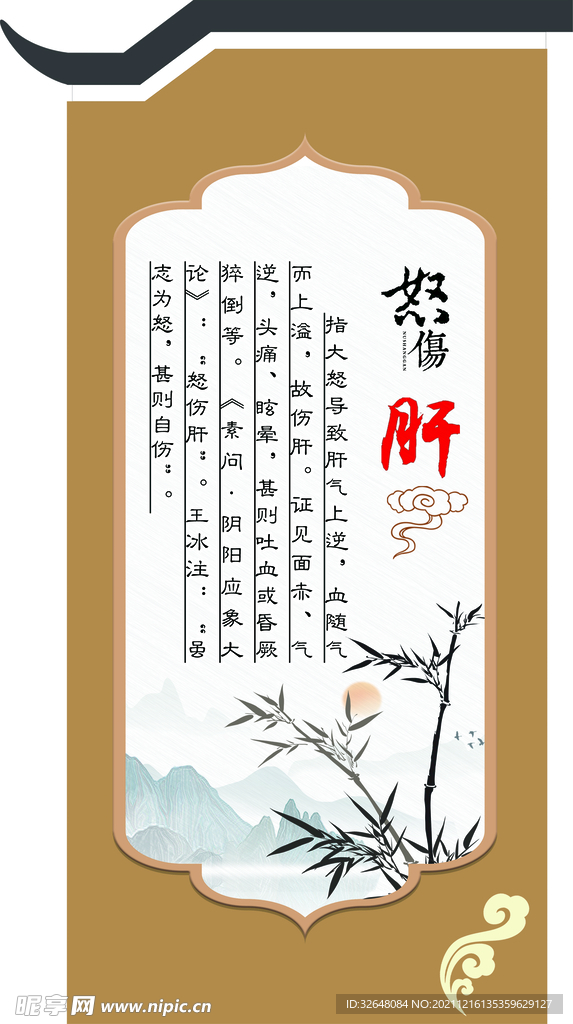 怒傷
NUSHANGGAN
肝
指大怒导致肝气上逆，血随气
而上溢，故伤肝。证见面赤、气
逆，头痛、眩晕，甚则吐血或昏厥
猝倒等。《素问·阴阳应象大
论》：“怒伤肝”。王冰注：“虽
志为怒，甚则自伤”。
昵享网 www.nipic.cn
ID:32648084 NO:20211216135359629127